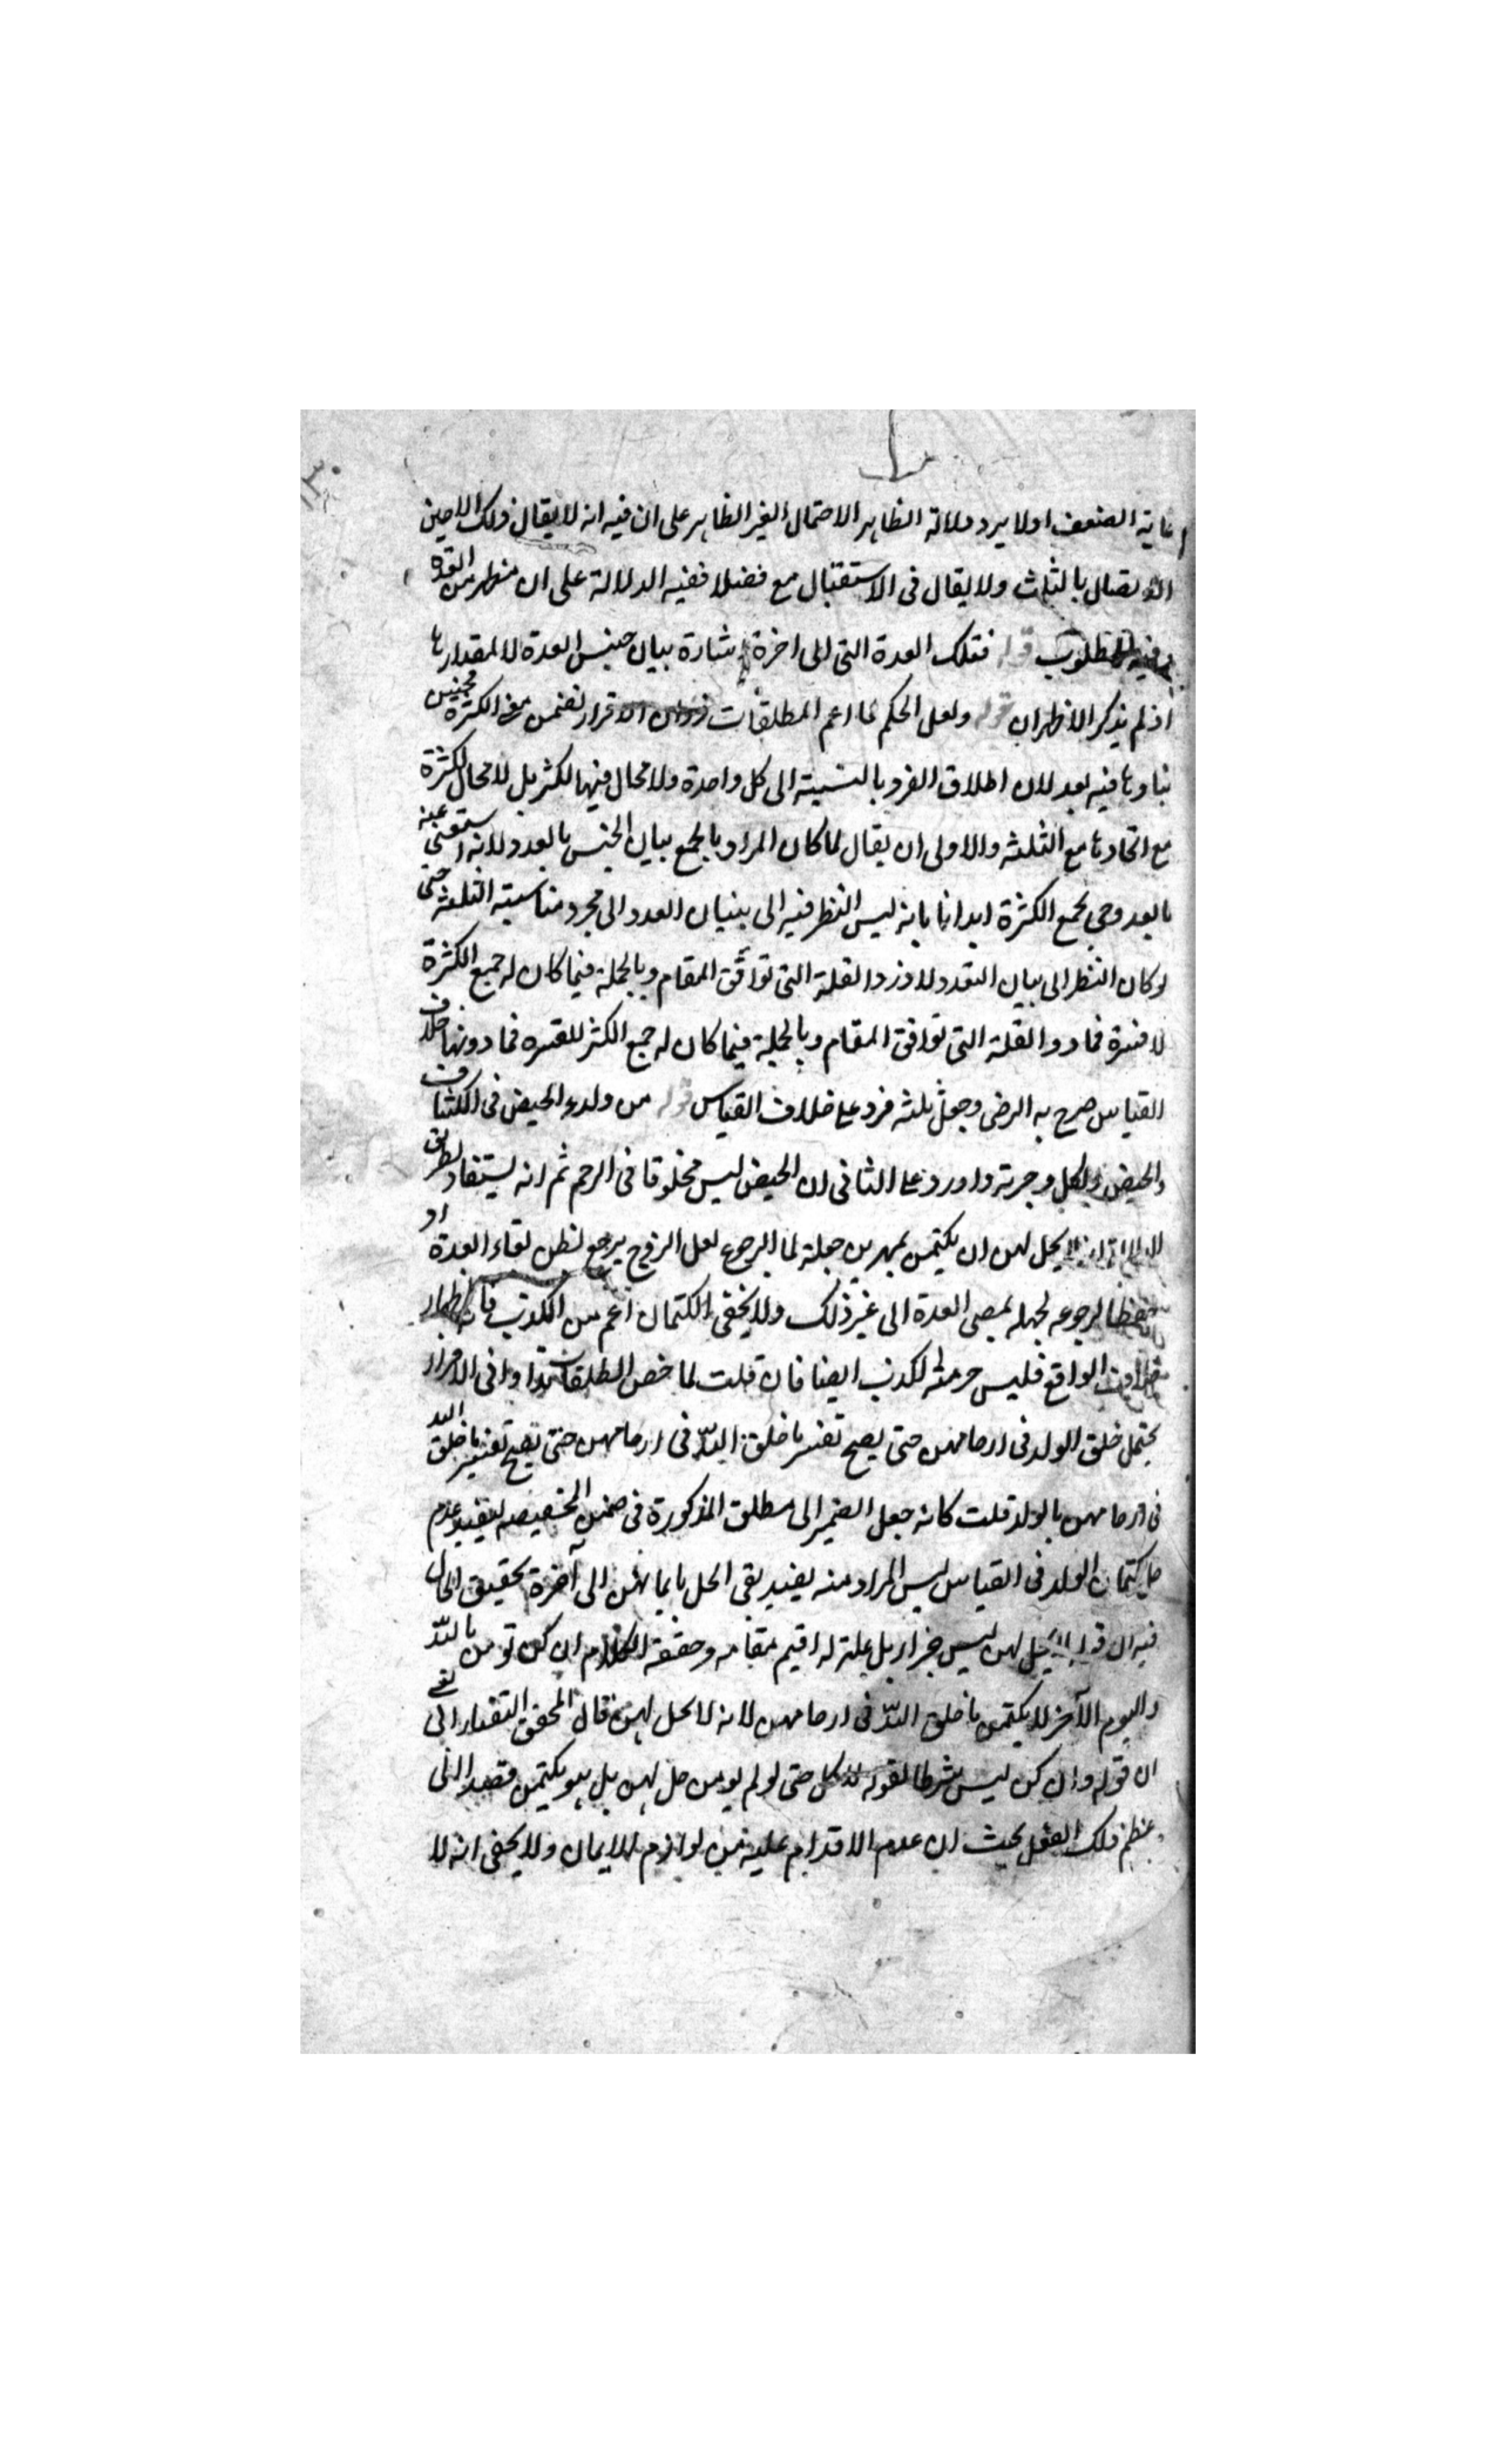 غاية الضعف اولا يرد دلالة الظاهر الاحتمال الغير الظاهر على ان فيه انه لا يقال ذلك الا حين
الاتصال بالثلث ولا يقال فى الاستقبال مع فضلا ففيه الدلالة على ان منظهر من القرء
المطلوب قوله فتلك العدة التى الى اخرة اشارة بيان جنس العدة لا لمقدارها
اذ لم يذكر الا ظهران قوله ولعل الحكم لما اعم المطلقات ذوات الاقرار تضمن معنى الكثرة فحينئذ
بناوها فيه بعد لان اطلاق الفرد بالنسبة الى كل واحدة ولا مجال فيها لكثر بل لا مجال لكثرة
مع اتحادها مع الثلثه والاولى ان يقال لما كان المراد بالجمع بيان الجنس بالعدد لانه استغنى عنه
بالعد وجى بجمع الكثرة ايدانا بانه ليس النظر فيه الى بنيان العدد الى مجرد مناسبته الثلثه حتى
لو كان النظر الى بيان التعدد لا وزد القلة التى توافق المقام وبالجملة فيما كان له جمع الكثرة
القلة التى توافق المقام وبالجملة فيما كان له جمع الكثر للقسره فما دونها خلاف
القياس صرح به الرضى وجعل ثلثه فرد على خلاف القياس قوله من ولد والحيض فى الكشاف
والحيض ولكل وجهة واورد على الثانى ان الحيض ليس مخلوقا فى الرحم ثم انه يستفاد بطريق
يحل لهن ان يكتمن عمهر من جملة لما الرجوع لعل الزوج يرجع لظن لقاء العدة او
لرجوعه لجهله بمضى العدة الى غير ذلك ولا يخفى الكتمان اعم من الكذب فانه اظهار
خلاف الواقع فليس حرمة الكذب ايضا فان قلت لما خص المطلقات بذوات الاقرار
يحتمل خلق الولد فى ارحامهن حتى يصح تفسر ما خلق الله فى ارحامهن حتى يصح تفسير ما خلق الله
فى ارحامهن بالولد قلت كانه جعل الضمير الى مطلق المذكورة فى ضمن المخصيصه ليفيد عدم
حل كتمان الولد فى القياس ليس المراد منه يفيد بقى الحل بايمانهن الى آخرة تحقيق الحال
فيه ان قوله لا يحل لهن ليس جزاء بل علته له اقيم مقامه وحقيقة الكلام ان كن تومن بالله
واليوم الآخر لا يكتمن ما خلق الله فى ارحامهن لانه لا يحل لهن قال المحقق التفتازانى يعنى
ان قوله وان كن ليس شرطا لقوله لا يحل حتى لو لم يومن حل لهن بل هو يكتمن قصدا الى
عظم ذلك الفعل بحيث ان عدم الاقدام عليه من لوازم الايمان ولا يخفى انه لا